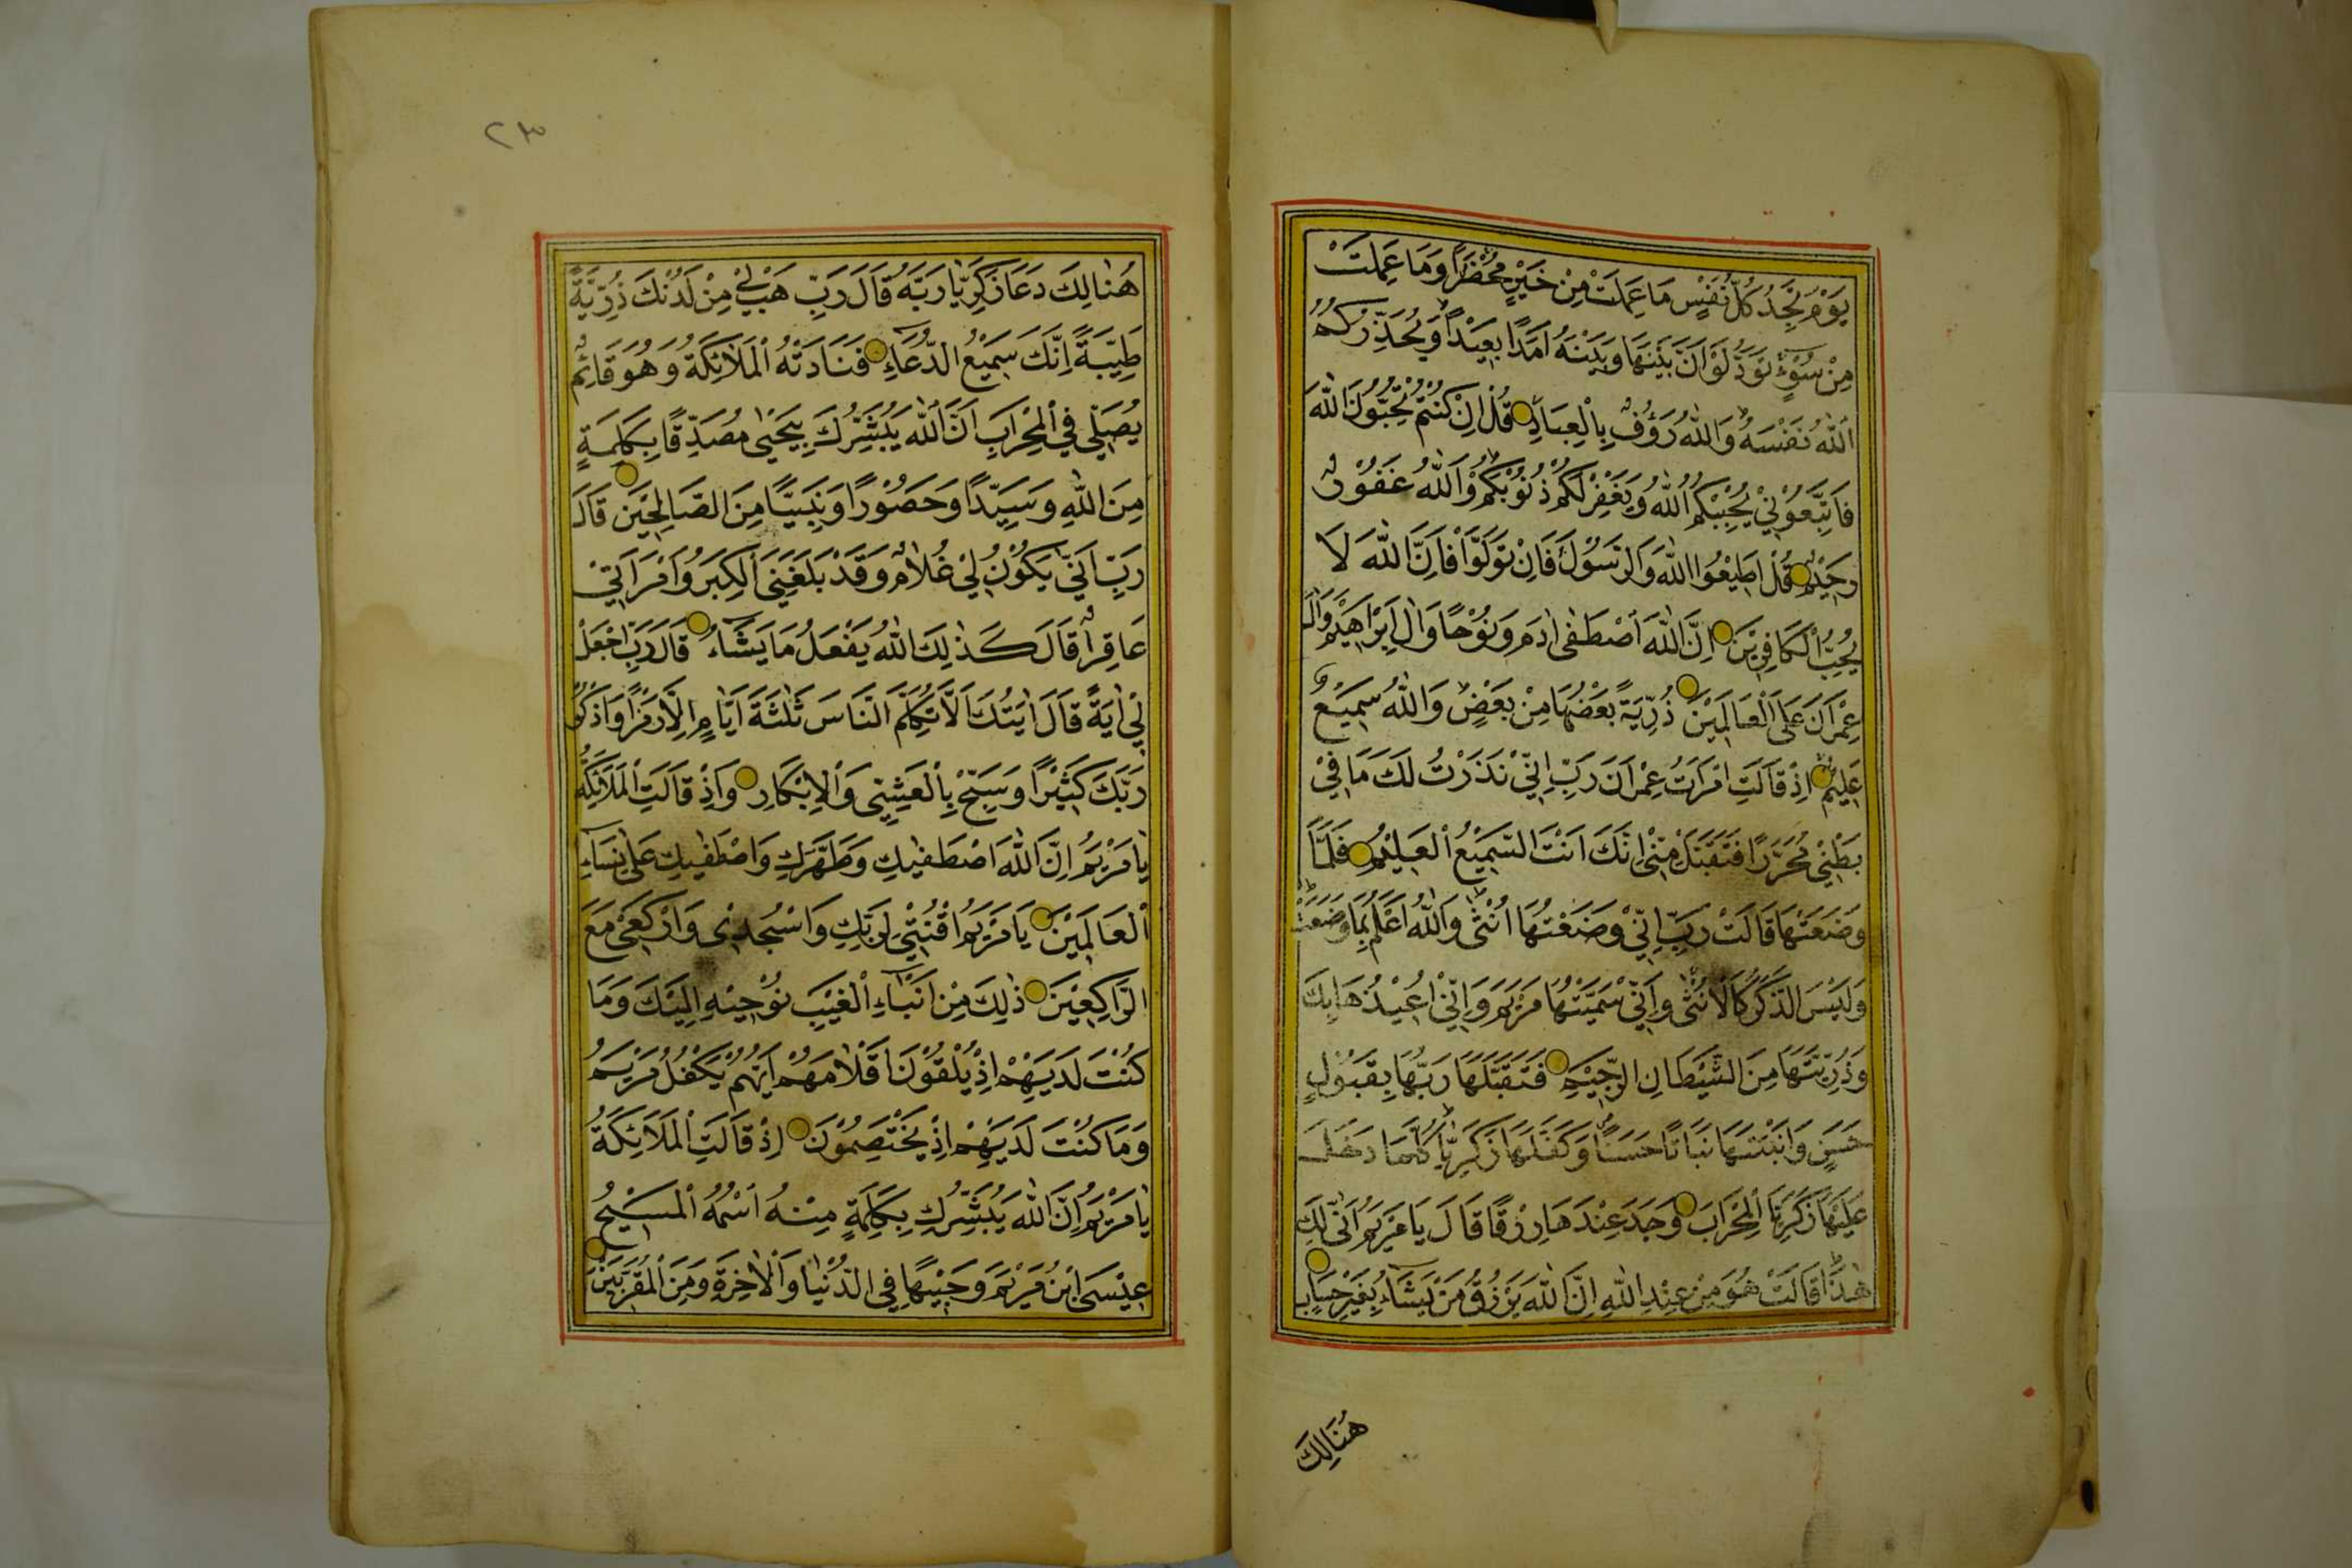 يَوْمَ تَجِدُ كُلُّ نَفْسٍ مَا عَمِلَتْ مِنْ خَيْرٍ مُحْضَرًا وَمَا عَمِلَتْ
مِنْ سُوْءٍ تَوَدُّ لَوْ اَنَّ بَيْنَهَا وَبَيْنَهُ اَمَدًا بَعِيْدًا وَيُحَذِّرُكُمُ
اللّٰهُ نَفْسَهُ وَاللّٰهُ رَؤُفٌ بِالْعِبَادِ قُلْ اِنْ كُنْتُمْ تُحِبُّوْنَ اللّٰهَ
فَاتَّبِعُوْنِيْ يُحْبِبْكُمُ اللّٰهُ وَيَغْفِرْ لَكُمْ ذُنُوْبَكُمْ وَاللّٰهُ غَفُوْرٌ
رَحِيْمٌ قُلْ اَطِيْعُوا اللّٰهَ وَالرَّسُوْلَ فَاِنْ تَوَلَّوْا فَاِنَّ اللّٰهَ لَا
يُحِبُّ الْكَافِرِيْنَ اِنَّ اللّٰهَ اصْطَفٰى اٰدَمَ وَنُوْحًا وَاٰلَ اِبْرَاهِيْمَ وَاٰلَ
عِمْرَانَ عَلَى الْعَالَمِيْنَ ذُرِّيَةً بَعْضُهَا مِنْ بَعْضٍ وَاللّٰهُ سَمِيْعٌ
عَلِيْمٌ اِذْ قَالَتِ امْرَاَتُ عِمْرَانَ رَبِّ اِنِّيْ نَذَرْتُ لَكَ مَا فِيْ
بَطْنِيْ مُحَرَّرًا فَتَقَبَّلْ مِنِّيْ اِنَّكَ اَنْتَ السَّمِيْعُ الْعَلِيْمُ فَلَمَّا
وَضَعَتْهَا قَالَتْ رَبِّ اِنِّيْ وَضَعْتُهَا اُنْثٰى وَاللّٰهُ اَعْلَمُ بِمَا وَضَعَتْ
وَلَيْسَ الذَّكَرُ كَالْاُنْثٰى وَاِنِّيْ سَمَّيْتُهَا مَرْيَمَ وَاِنِّيْ اُعِيْذُهَا بِكَ
وَذُرِّيَّتَهَا مِنَ الشَّيْطَانِ الرَّجِيْمِ فَتَقَبَّلَهَا رَبُّهَا بِقَبُوْلٍ
حَسَنٍ وَاَنْبَتَهَا نَبَاتًا حَسَنًا وَكَفَّلَهَا زَكَرِيَّا كُلَّمَا دَخَلَ
عَلَيْهَا زَكَرِيَّا الْمِحْرَابَ وَجَدَ عِنْدَهَا رِزْقًا قَالَ يَا مَرْيَمُ اَنّٰى لَكِ
هٰذَا قَالَتْ هُوَ مِنْ عِنْدِ اللّٰهِ اِنَّ اللّٰهَ يَرْزُقُ مَنْ يَشَاءُ بِغَيْرِ حِسَابٍ
هُنَالِكَ
٢٣
هُنَالِكَ دَعَا زَكَرِيَّا رَبَّهُ قَالَ رَبِّ هَبْ لِيْ مِنْ لَدُنْكَ ذُرِّيَّةً
طَيِّبَةً اِنَّكَ سَمِيْعُ الدُّعَاءِ فَنَادَتْهُ الْمَلٰائِكَةُ وَهُوَ قَائِمٌ
يُصَلِّي فِي الْمِحْرَابِ اَنَّ اللّٰهَ يُبَشِّرُكَ بِيَحْيٰى مُصَدِّقًا بِكَلِمَةٍ
مِنَ اللّٰهِ وَسَيِّدًا وَحَصُوْرًا وَنَبِيًّا مِنَ الصَّالِحِيْنَ قَالَ
رَبِّ اَنّٰى يَكُوْنُ لِيْ غُلَامٌ وَقَدْ بَلَغَنِيَ الْكِبَرُ وَامْرَاَتِيْ
عَاقِرٌ قَالَ كَذٰلِكَ اللّٰهُ يَفْعَلُ مَا يَشَاءُ قَالَ رَبِّ اجْعَلْ
لِيْ اٰيَةً قَالَ اٰيَتُكَ اَلَّا تُكَلِّمَ النَّاسَ ثَلٰثَةَ اَيَّامٍ اِلَّا رَمْزًا وَاذْكُرْ
رَبَّكَ كَثِيْرًا وَسَبِّحْ بِالْعَشِيِّ وَالْاِبْكَارِ وَاِذْ قَالَتِ الْمَلَائِكَةُ
يَا مَرْيَمُ اِنَّ اللّٰهَ اصْطَفٰيكِ وَطَهَّرَكِ وَاصْطَفٰيكِ عَلٰى نِسَاءِ
الْعَالَمِيْنَ يَا مَرْيَمُ اقْنُتِيْ لِرَبِّكِ وَاسْجُدِيْ وَارْكَعِيْ مَعَ
الرَّاكِعِيْنَ ذٰلِكَ مِنْ اَنْبَاءِ الْغَيْبِ نُوْحِيْهِ اِلَيْكَ وَمَا
كُنْتَ لَدَيْهِمْ اِذْ يُلْقُوْنَ اَقْلَامَهُمْ اَيُّهُمْ يَكْفُلُ مَرْيَمَ
وَمَا كُنْتَ لَدَيْهِمْ اِذْ يَخْتَصِمُوْنَ اِذْ قَالَتِ الْمَلَائِكَةُ
يَا مَرْيَمُ اِنَّ اللّٰهَ يُبَشِّرُكِ بِكَلِمَةٍ مِنْهُ اسْمُهُ الْمَسِيْحُ
عِيْسَى ابْنُ مَرْيَمَ وَجِيْهًا فِي الدُّنْيَا وَالْاٰخِرَةِ وَمِنَ الْمُقَرَّبِيْنَ